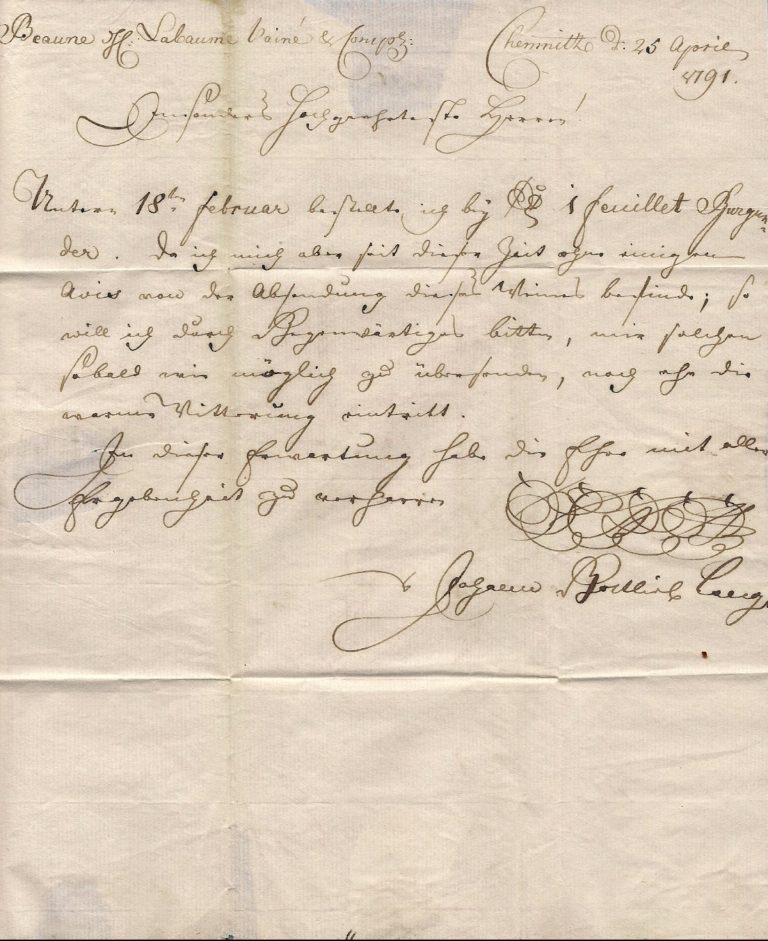 Beaune HH: Labaume l'ainé & Comp:
Chemnitz d: 25 April
1791.
Insonders Hochgeehrteste Herren!
Unterm 18ten februar bestellte ich bey 1 feuillet Burgun=
der. Da ich mich aber seit dieser Zeit ohne einigen
Avis von der Absendung dieses Weines befinde; so
will ich durch Gegenwärtiges bitten, mir solchen
sobald wie möglich zu übersenden, noch ehe die
warme Witterung eintritt.
In dieser Erwartung habe die Ehre mit aller
Ergebenheit zu verharren
Johann Gottlieb